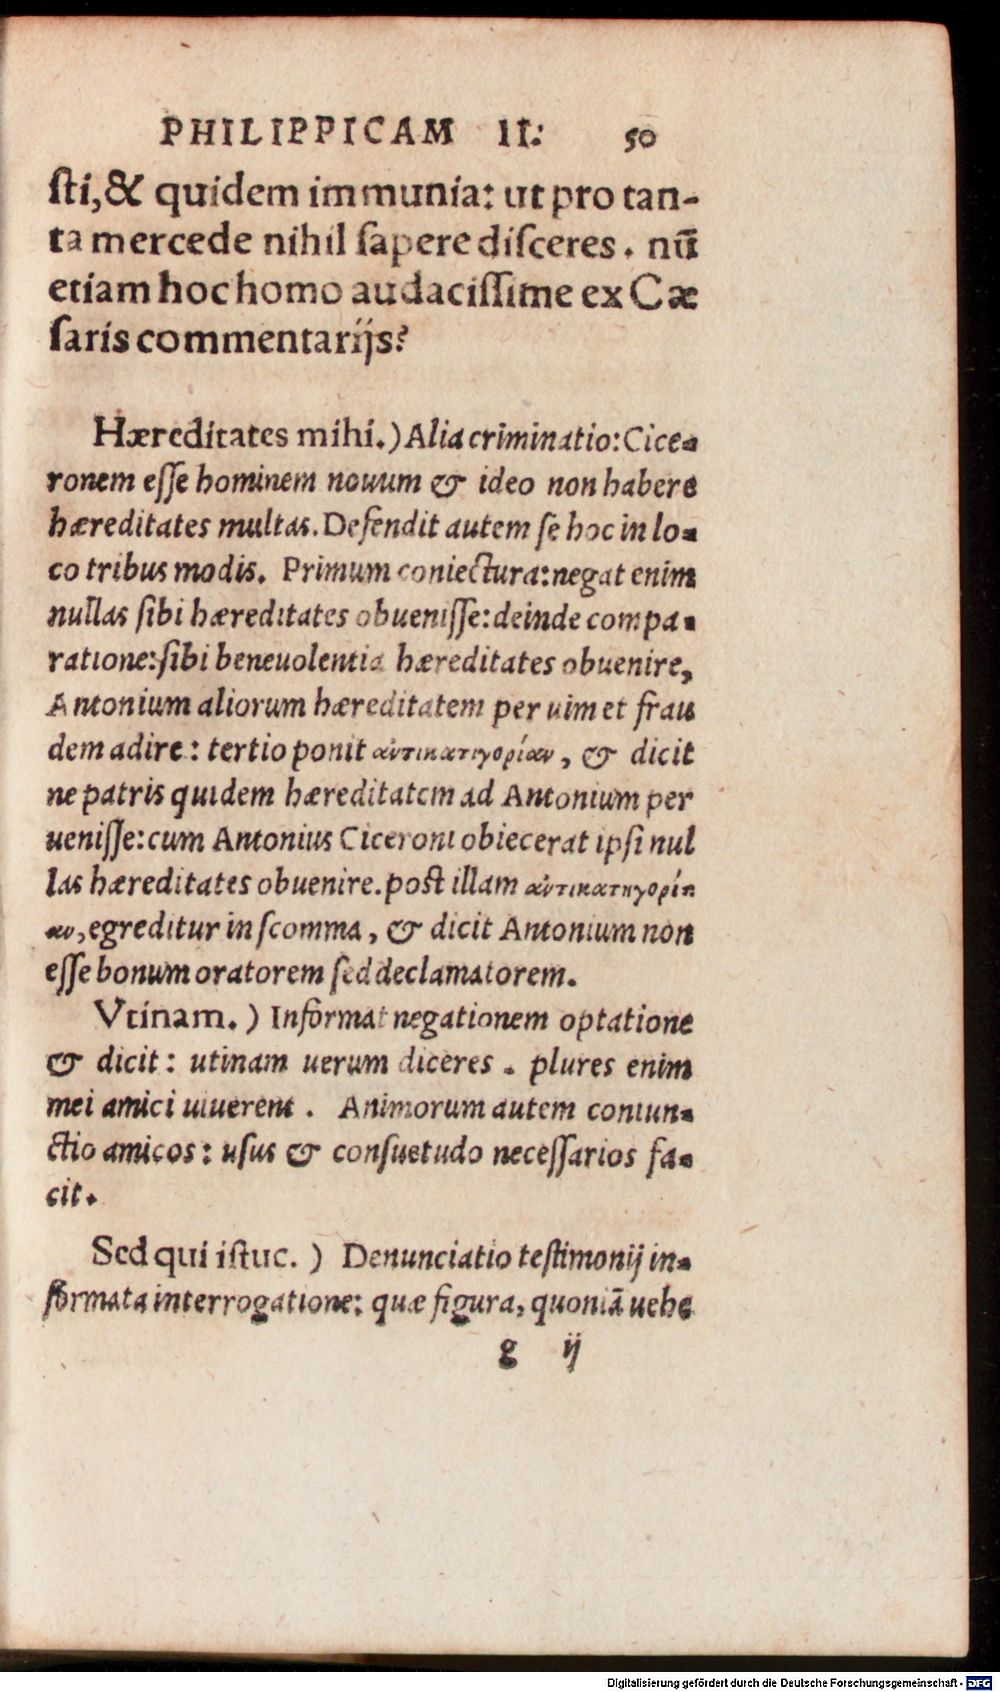 PHILIPPICAM II: 50
sti, & quidem immunia: ut pro tan-
ta mercede nihil sapere disceres. nū
etiam hoc homo audacissime ex Cæ
saris commentarijs?
Hæreditates mihi.) Alia criminatio: Cice-
ronem esse hominem nouum & ideo non habere
hæreditates multas. Defendit autem se hoc in lo-
co tribus modis. Primum coniectura: negat enim
nullas sibi hæreditates obuenisse: deinde compa-
ratione: sibi beneuolentia hæreditates obuenire,
Antonium aliorum hæreditatem per uim et frau
dem adire: tertio ponit ἀντικατιγορίαν, & dicit
ne patris quidem hæreditatem ad Antonium per
uenisse: cum Antonius Ciceroni obiecerat ipsi nul
las hæreditates obuenire. post illam ἀντικατηγορί-
αν, egreditur in scomma, & dicit Antonium non
esse bonum oratorem sed declamatorem.
Vtinam.) Informat negationem optatione
& dicit: utinam uerum diceres. plures enim
mei amici uiuerent. Animorum autem coniun-
ctio amicos: usus & consuetudo necessarios fa-
cit.
Sed qui istuc.) Denunciatio testimonij in-
formata interrogatione: quæ figura, quoniā uehe
g ij
Digitalisierung gefördert durch die Deutsche Forschungsgemeinschaft - DFG